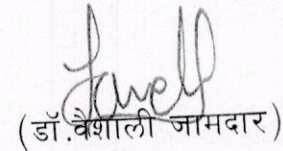 (डॉ.वैशाली जामदार)